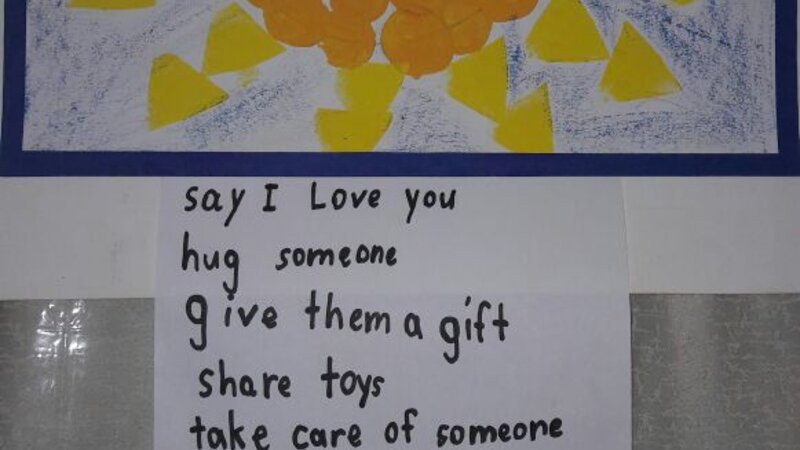 say I Love you
hug someone
give them a gift
share toys
take care of someone